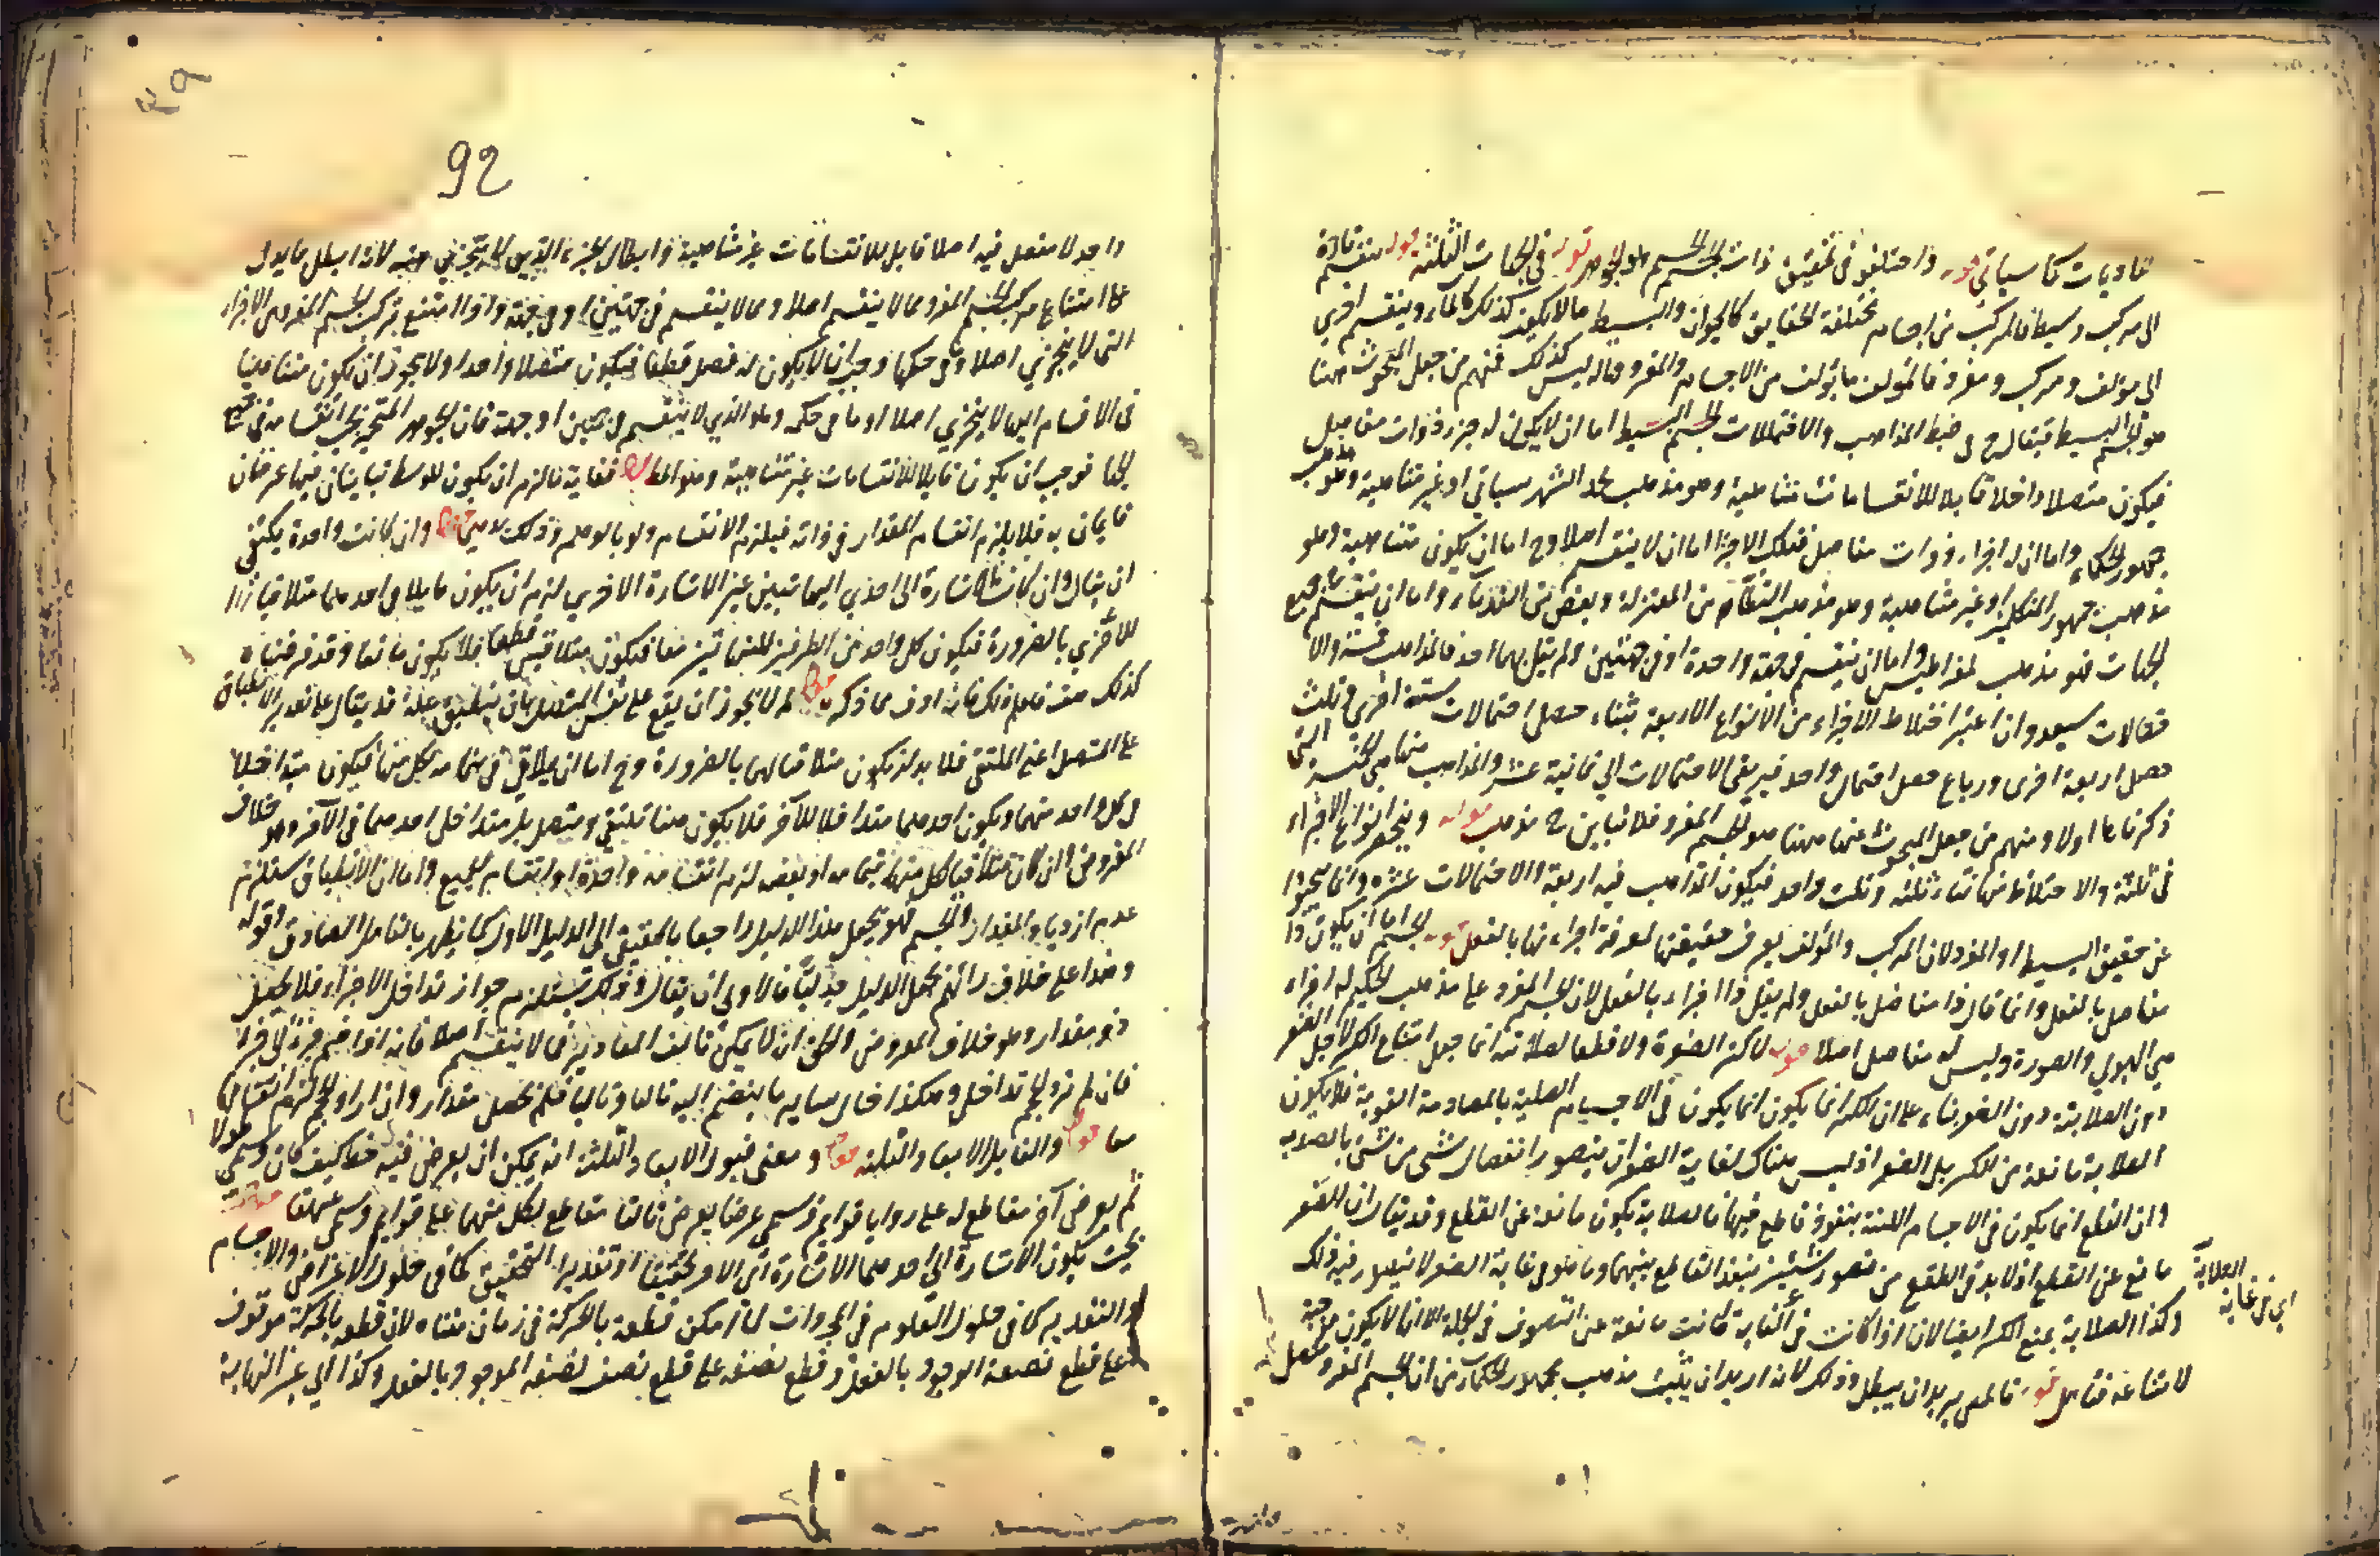 عاديات كما سياتي قوله واختلفوا في تحقيق ذات الجسم هو الجوهر قوله في الجهات الثلثة قوله ينقسم تارة
الى مركب وبسيط فالمركب من اجسام مختلفة الحقايق كالحيوان والبسيط ما لا يكون كذلك كالماء وينقسم اخرى
الى مؤلف ومركب ومفرد فالمؤلف ما يؤلف من الاجسام والمفرد ما ليس كذلك فمنهم من جعل المبحوث ههنا
هو الجسم البسيط فيقال ح في ضبط المذاهب والاحتمالات الجسم البسيط اما ان لا يكون له جزء ذوات مفاصل
فيكون متصلا واحدا قابلا للانقسامات متناهية وهو مذهب محمد الشهرستاني او غير متناهية وهو مذهب
جمهور الحكماء واما ان له اجزاء ذوات مفاصل فتلك الاجزاء اما ان لا ينقسم اصلا وح اما ان يكون متناهية وهو
مذهب جمهور المتكلمين او غير متناهية وهو مذهب النظام من المعتزلة وبعض من القدماء واما ان ينقسم في جميع
الجهات فهو مذهب ذيمقراطيس واما ان ينقسم في جهة واحدة او في جهتين ولم يقل بهما احد فالمذاهب خمسة والا
حتمالات سبعة وان اعتبر اختلاط الاجزاء من الانواع الاربعة ثناء حصل احتمالات ستة اخرى وثلث
حصل اربعة اخرى ورباع حصل احتمال واحد فيرتقي الاحتمالات الى ثمانية عشر والمذاهب منها هي الخمسة التي
ذكرناها اولا ومنهم من جعل المبحوث عنها ههنا هو الجسم المفرد فلا تباين ح مذهب قوله وينحصر انواع الاجزاء
في ثلثة والاختلاط منها ثناء ثلثة وثلث واحد فيكون المذاهب فيه اربعة والاحتمالات عشرة وانما بحثوا
عن حقيقة البسيط او المفرد لان المركب والمؤلف يعرف حقيقتهما لمعرفة اجزائهما بالفعل قوله الجسم اما ان يكون ذا
مفاصل بالفعل وانما قال ذا مفاصل بالفعل ولم يقل ذا اجزاء بالفعل لان الجسم المفرد على مذهب الحكيم له اجزاء
هي الهيولى والصورة وليس له مفاصل اصلا قوله لا كسر الصغرة ولا قطعا لصلابته انما جعل امتناع الكسر لاجل الصغر
دون الصلابة دون الصغر بناء على ان الكسر انما يكون انما يكون في الاجسام الصلبة بالمصادمة القوية فلا يكون
الصلابة مانعة من الكسر بل الصغر اذ ليس هناك لغاية الصغر ان يتصور انفصال شئ من شئ بالصلابة
وان القطع انما يكون في الاجسام اللينة بنفوذ قاطع فيها فالصلابة يكون مانعة عن القطع وقد يقال ان الصغر
مانع عن القطع اذ لا بد في القطع من تصور شيئين ينفذ القاطع بينهما وما هو في غاية الصغر لا يتصور فيه ذلك
وكذا الصلابة يمنع الكسر ايضا لانها اذا كانت في الغاية كانت مانعة عن التصرف في الجملة الا انها لا يكون موجبة
لامتناعه فتامل قوله فالمص يريد ان يبطل وذلك لانه اريد ان يثبت مذهب جمهور الحكماء من ان الجسم المفرد متصل
الصلابة
اي في غاية
92
واحد لا مفصل فيه اصلا قابل للانقسامات غير متناهية وابطال الجزء الذي لا يتجزى منه لانه ابطل ما يدل
على امتناع تركب الجسم المفرد مما لا ينقسم اصلا ومما لا ينقسم في جهتين او في جهة واذا امتنع تركب الجسم المفرد من الاجزاء
التي لا يتجزى اصلا وفي حكمها وجب ان لا يكون له مفصل قطعا فيكون متصلا واحدا ولا يجوز ان يكون متناهيا
في الاقسام اليها لا يتجزى اصلا او ما في حكمه وهو الذي لا ينقسم في جهتين او جهة فان الجوهر المتحيز يجب انقسامه في جميع
الجهات فوجب ان يكون قابلا للانقسامات غير متناهية وهو المط قوله فغاية ما لزم ان يكون للوسط نهايتان فيهما عرضان
قايمان به فلا يلزم انقسام المقدار في ذاته فيلزم الانقسام ولو بالوهم وذلك لا وان كانت واحدة يكتفى
ان يقال وان كانت الاشارة الى احدى النهايتين عين الاشارة الى الاخرى لزم ان يكون ما يلاقي احدهما ملاقيا
للاخرى بالضرورة فيكون كل واحد من الطرفين للنهايتين معا فيكون متلاقيين قطعا فلا يكون مانعا وقد فرضناه
كذلك هف فاعلم ذلك فانه اوف مما ذكره قوله لم لا يجوز ان يقع على نفس المتصل بان ينطبق عليه قد يقال على تقدير الانطباق
على المتصل اعني الملتقى فلا بد ان يكون متلاقيا لهما بالضرورة وح اما ان يلاقي بتمامه لكل منهما فيكون متداخلا
في كل واحد منهما ويكون احدهما متداخلا للاخر فلا يكون هنا ملتقى ومتصل بل متداخل احدهما في الآخر وهو خلاف
المفروض وان كان متلاقيا لكل منهما بتمامه او بعضه لزم انقسامه واحدة او انقسام الجميع واما ان الانطباق يستلزم
عدم ازدياد المقدار والحجم فهو يجعل هذا الدليل راجعا بالحقيقة الى الدليل الاول كما يظهر بالتامل الصادق قوله
وهذا على خلاف رائهم يجعل الدليل جدليا فالاولى ان يقال وذلك يستلزم جواز تداخل الاجزاء فلا يحصل
ذو مقدار وهو خلاف المفروض والحق ان لا يمكن تاليف المقادير مما لا ينقسم اصلا فانه اذا ضم جزء الى جزء
فان لم يزد الحجم تداخل وهكذا حال ساير ما ينضم اليه ثالثا وتاليا فلم يحصل مقدار وان ازداد الحجم لزم انقسامها
قوله والقابل للابعاد الثلثة قوله ومعنى قبول الابعاد الثلثة انه يمكن ان يعرض فيه خط كيف كان ويسمى طولا
ثم يعرض آخر مقاطع له على زوايا قوايم ويسمى عرضا ويعرض ثالثا مقاطع لكل منهما على قوايم ويسمى عمقا قوله
بحيث يكون الاشارة الى احدهما الاشارة الى الاخر تحقيقا او تقديرا التحقيق كما في حلول الاعراض والاجسام
والتقدير كما في حلول العلوم في المجردات لما امكن قطعه بالحركة في زمان متناه لان قطعه بالحركة موقوف
على قطع نصفه الموجود بالفعل وقطع نصفه على قطع نصف نصفه الموجود بالفعل وكذا الى غير النهاية